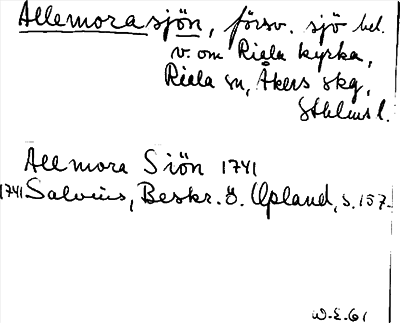 Allemorasjön, försv. sjö bel.
v. om Riala kyrka,
Riala sn, Åkers skg,
Sthlms l.
Allmora Siön 1741
1741 Salvius, Beskr. ö. Upland, s. 157.
W.E. 61